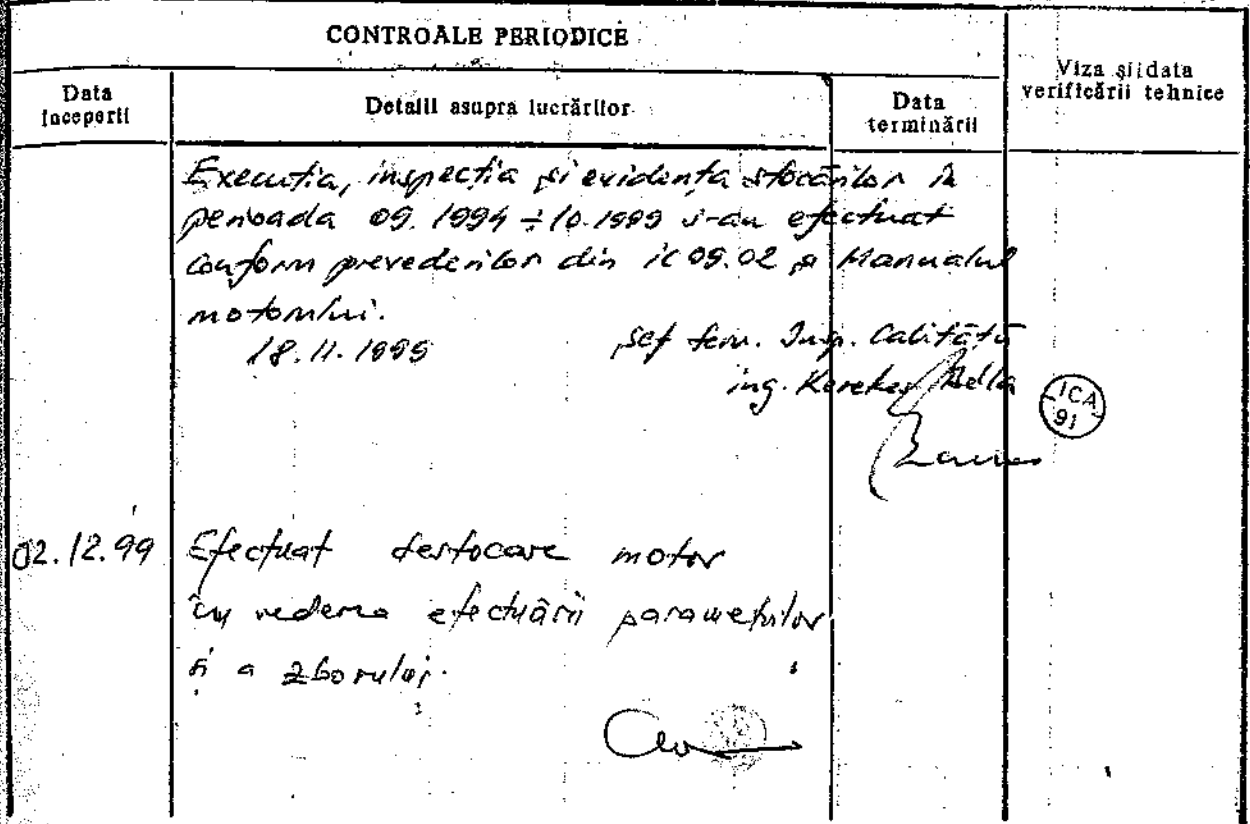 CONTROALE PERIODICE
Viza și data
verificării tehnice
Data
începerii
Detalii asupra lucrărilor
Data
terminării
Execuția, inspecția și evidența stocărilor în
perioada 09.1994 ÷ 10.1999 s-au efectuat
conform prevederilor din ic 09.02 și Manualul
motorului.
18.11.1999
șef serv. Insp. Calității
ing. Kerekes Bella
ICA
91
02.12.99 Efectuat destocare motor
în vederea efectuării parametrilor
și a zborului.